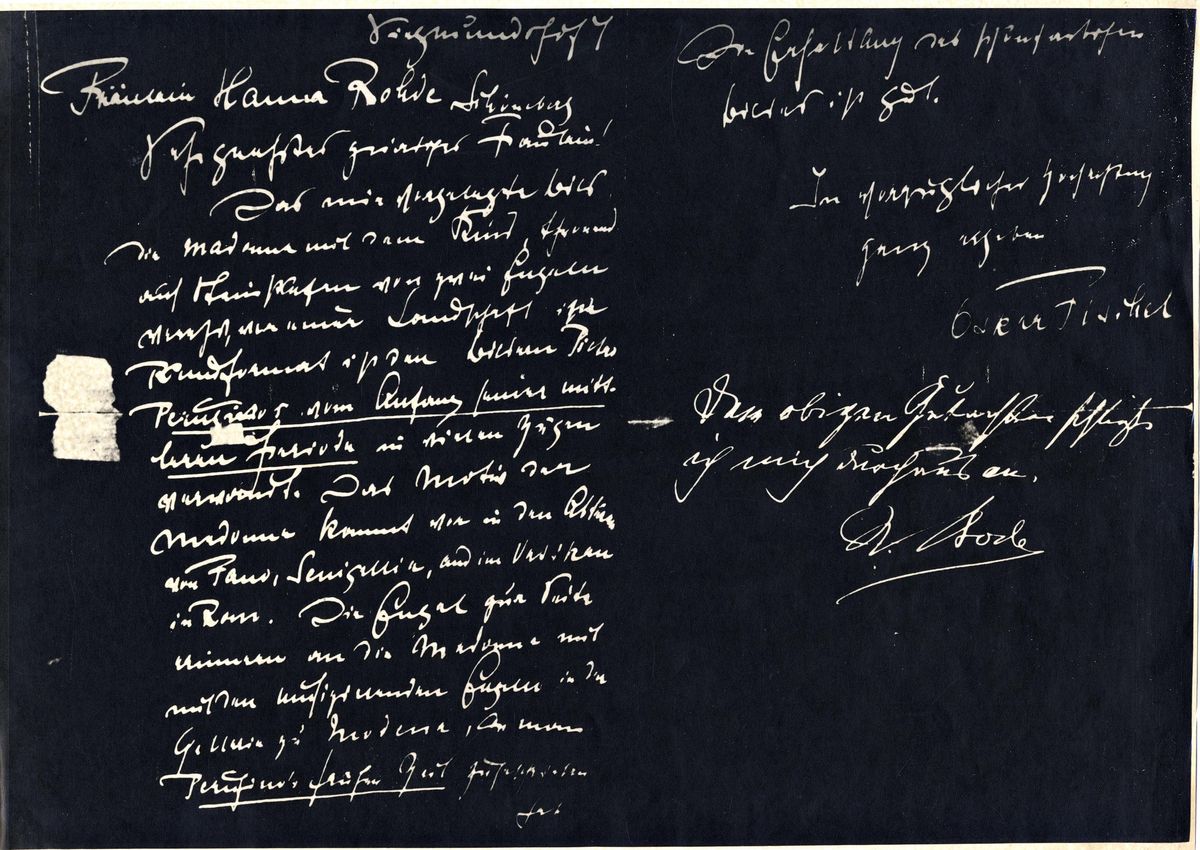 Siegmundshof 7
Fräulein Hanna Rohde Schöneberg
Sehr geehrtes gnädiges Fräulein!
Das mir vorgelegte Bild
die Madonna mit dem Kind, thronend
auf von zwei Engeln
verehrt, vor einer Landschaft im
Rundformat ist den Bildern Pietro
Peruginos vom Anfang seiner mitt-
leren Periode in vielen Zügen
verwandt. Das Motiv der
Madonna kommt vor in den Altären
von Fano, Senigallia, und im Vatikan
in Rom. Die Engel zur Seite
erinnern an die Madonna mit
mit den musizierenden Engeln in der
Gallerie zu Modena, die man
Perugino's frühen Zeit zugeschrieben
hat
Die Erhaltung des
Bildes ist gut.
In vorzüglicher Hochachtung
ganz ergeben
Oskar Fischel
Dem obigen Gutachten schliesse
ich mich durchaus an.
W. Bode